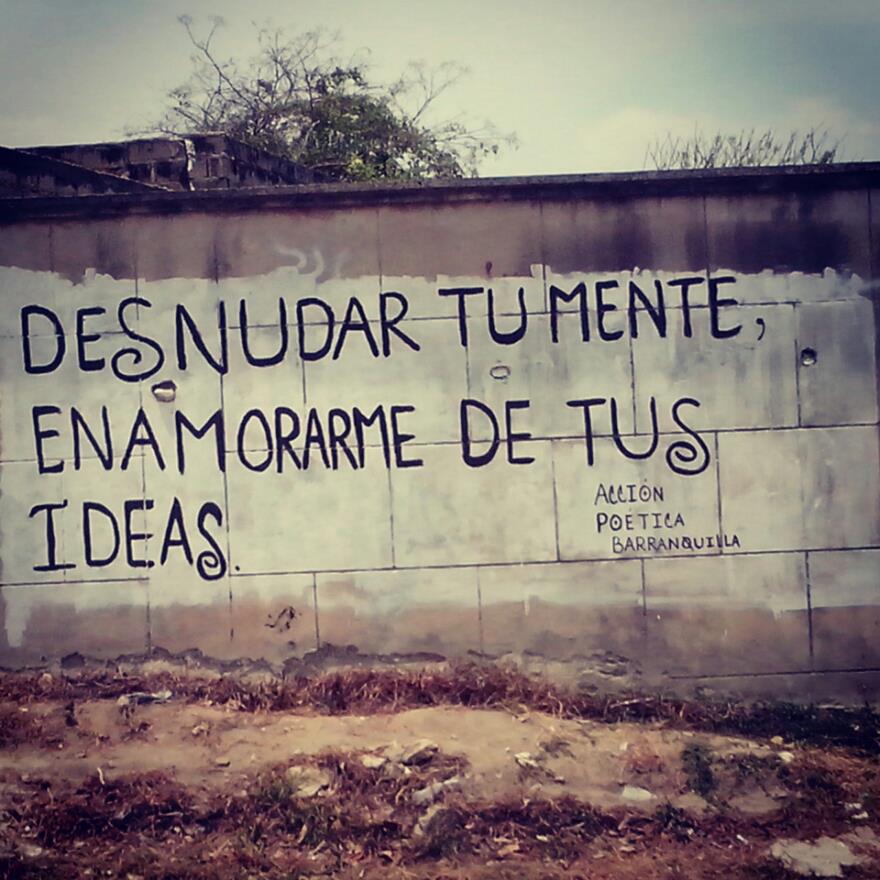 DESNUDAR TU MENTE,
ENAMORARME DE TUS
IDEAS.
ACCIÓN
POÉTICA
BARRANQUILLA